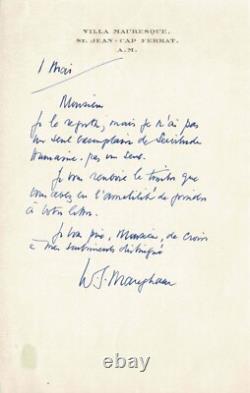 VILLA MAURESQUE,
ST. JEAN - CAP FERRAT,
A.M.
1 Mai
Monsieur
Je le regrette, mais je n'ai pas
un seul exemplaire de Servitude
humaine. pas un seul.
Je vous renvoie le timbre que
vous avez eu l'amabilité de joindre
à votre lettre.
Je vous prie, Monsieur, de croire
à mes sentiments distingués
W. S. Maugham
ebay
© 164